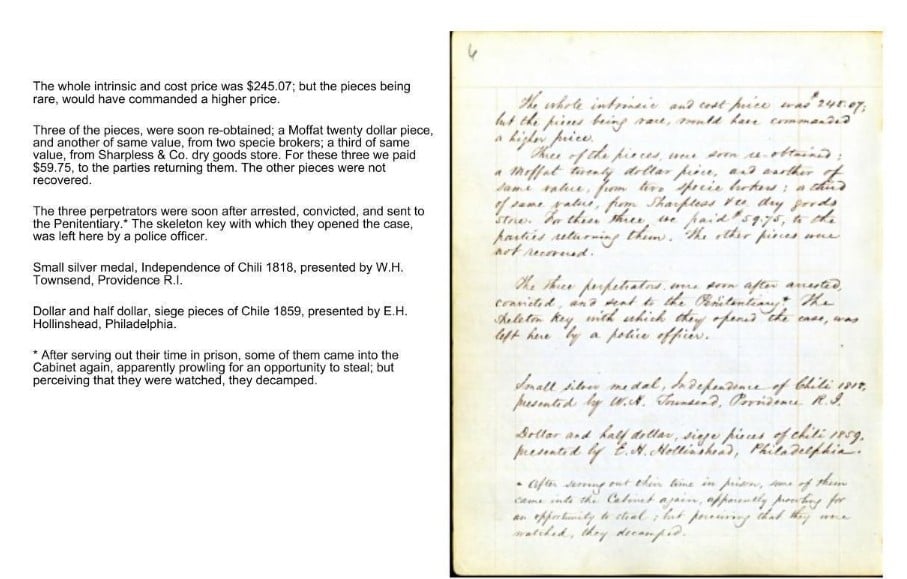 The whole intrinsic and cost price was $245.07; but the pieces being
rare, would have commanded a higher price.
Three of the pieces, were soon re-obtained; a Moffat twenty dollar piece,
and another of same value, from two specie brokers; a third of same
value, from Sharpless & Co. dry goods store. For these three we paid
$59.75, to the parties returning them. The other pieces were not
recovered.
The three perpetrators were soon after arrested, convicted, and sent to
the Penitentiary.* The skeleton key with which they opened the case,
was left here by a police officer.
Small silver medal, Independence of Chili 1818, presented by W.H.
Townsend, Providence R.I.
Dollar and half dollar, siege pieces of Chile 1859, presented by E.H.
Hollinshead, Philadelphia.
* After serving out their time in prison, some of them came into the
Cabinet again, apparently prowling for an opportunity to steal; but
perceiving that they were watched, they decamped.
6
The whole intrinsic and cost price was $245.07;
but the pieces being rare, would have commanded
a higher price.
Three of the pieces, were soon re-obtained;
a Moffat twenty dollar piece, and another of
same value, from two specie brokers; a third
of same value, from Sharpless & Co. dry goods
store. For these three, we paid $59.75, to the
parties returning them. The other pieces were
not recovered.
The three perpetrators were soon after arrested,
convicted, and sent to the Penitentiary.* The
skeleton key with which they opened the case, was
left here by a police officer.
Small silver medal, Independence of Chili 1818,
presented by W.H. Townsend, Providence R.I.
Dollar and half dollar, siege pieces of Chili 1859,
presented by E.H. Hollinshead, Philadelphia.
* After serving out their time in prison, some of them
came into the Cabinet again, apparently prowling for
an opportunity to steal; but perceiving that they were
watched, they decamped.